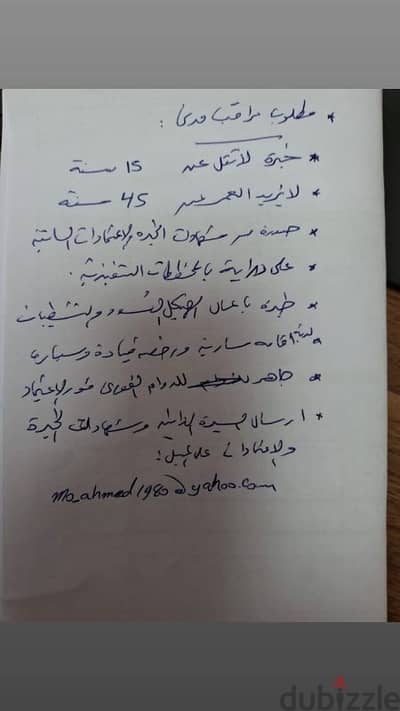 * مطلوب مراقب مدني :
* خبرة لا تقل عن 15 سنة
* لا يزيد العمر عن 45 سنة
* صورة من شهادات الخبرة والاعتمادات السابقة
* على دراية بالمخططات التنفيذية .
* خبرة باعمال الهيكل الاسود والتشطيبات
* لديه اقامه سارية ورخصة قيادة وسيارة
* جاهز للدوام الفوري فور الاعتماد
* ارسال السيرة الذاتية وشهادات الخبرة
والاعتمادات على الميل :
mo_ahmed1980@yahoo.com
dubizzle